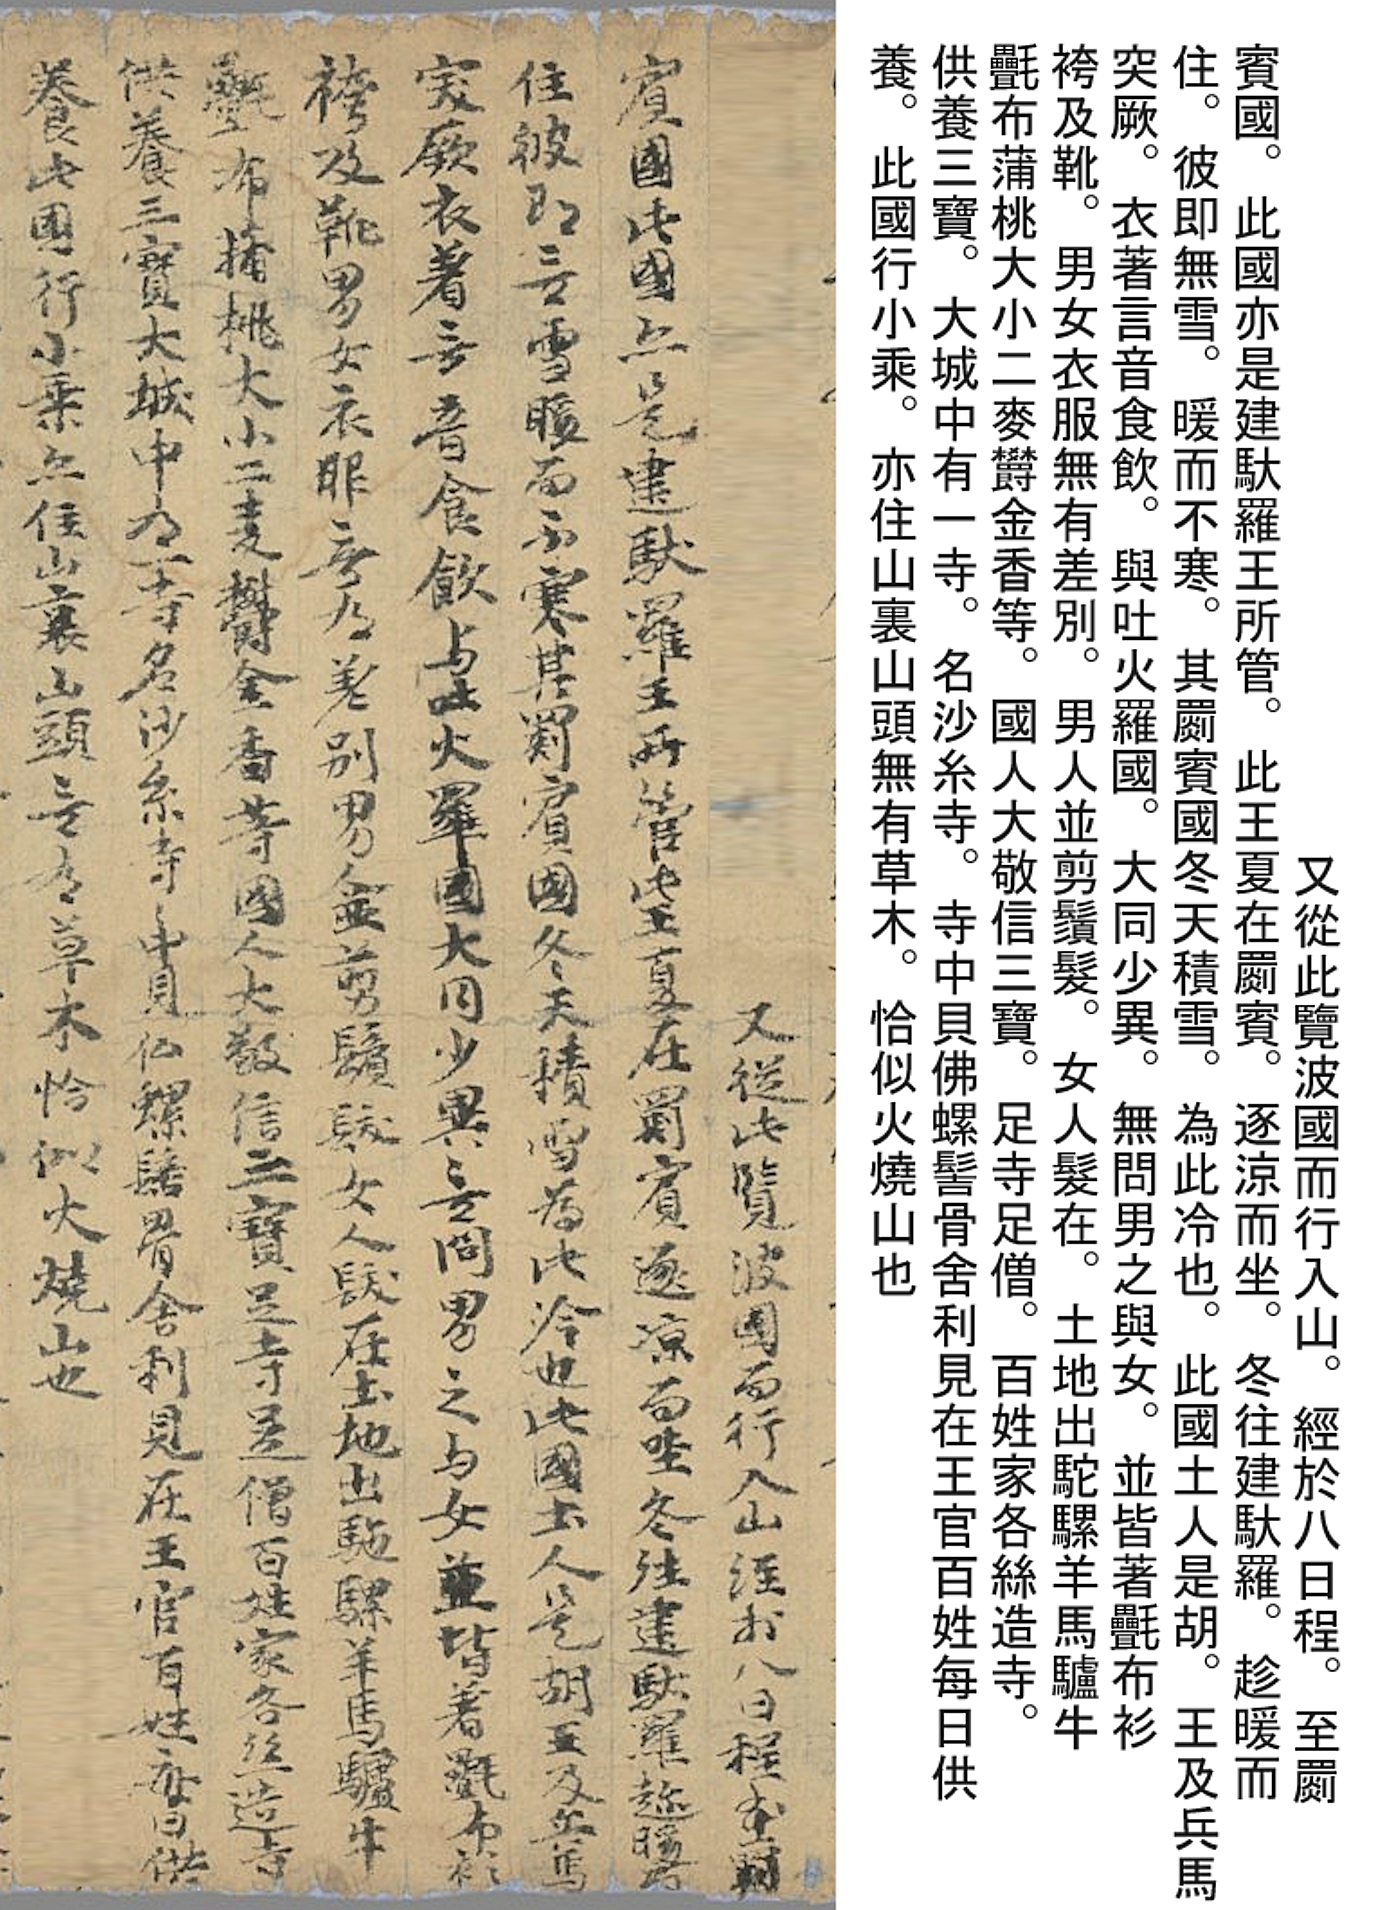 又從此覽波國而行入山。經於八日程。至罽
賓國。此國亦是建馱羅王所管。此王夏在罽賓。逐涼而坐。冬往建馱羅。趁暖而
住。彼即無雪。暖而不寒。其罽賓國冬天積雪。為此冷也。此國土人是胡。王及兵馬
突厥。衣著言音食飲。與吐火羅國。大同少異。無問男之與女。並皆著㲲布衫
袴及靴。男女衣服無有差別。男人並剪鬚髮。女人髮在。土地出駝騾羊馬驢牛
㲲布蒲桃大小二麥欝金香等。國人大敬信三寶。足寺足僧。百姓家各絲造寺。
供養三寶。大城中有一寺。名沙糸寺。寺中貝佛螺髻骨舍利見在王官百姓每日供
養。此國行小乘。亦住山裏山頭無有草木。恰似火燒山也
又從此覽波國而行入山經於八日程至罽
賓國此國亦是建馱羅王所管此王夏在罽賓逐涼而坐冬往建馱羅趁暖而
住彼即无雪暖而不寒其罽賓國冬天積雪為此冷也此國土人是胡王及兵馬
突厥衣著言音食飲与吐火羅國大同少異无問男之与女並皆著㲲布衫
袴及靴男女衣服无有差別男人並剪鬚髮女人髮在土地出駝騾羊馬驢牛
㲲布蒲桃大小二麥欝金香等國人大敬信三寶足寺足僧百姓家各絲造寺
供養三寶大城中有一寺名沙糸寺々中貝仏螺髻骨舍利見在王官百姓每日供
養此國行小乘亦住山裏山頭无有草木恰似火燒山也